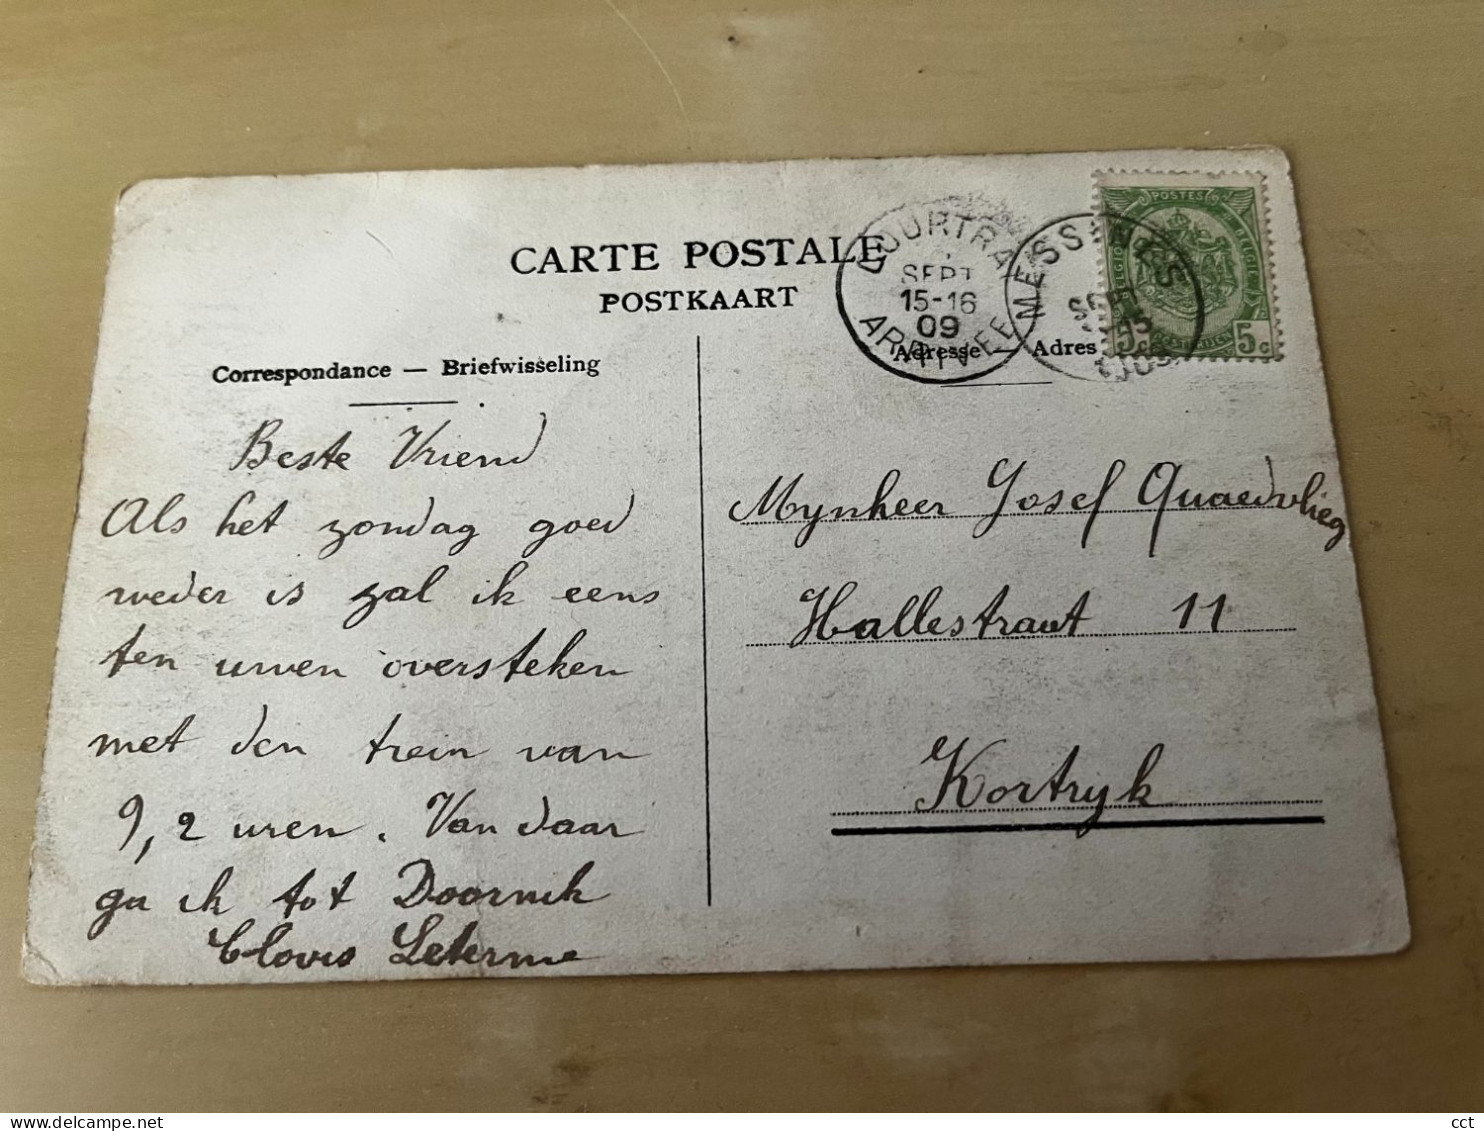 CARTE POSTALE
POSTKAART
COURTRAI
SEPT
15-16
09
ARRIVEE
MESSINES
SEPT
POSTES
5c 5c
Correspondance — Briefwisseling
Adresse — Adres
Beste Vriend
Als het zondag goed
weder is zal ik eens
ten uwen oversteken
met den trein van
9,2 uren. Van daar
ga ik tot Doornik
Clovis Leterme
Mynheer Josef Quaedvlieg
Hallestraat 11
Kortryk
cct